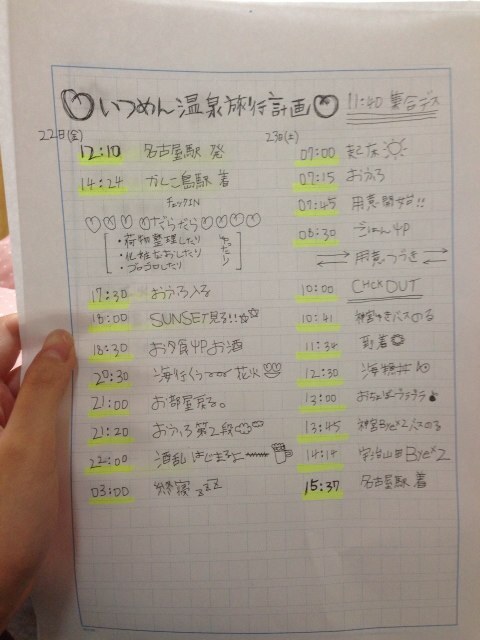 いつめん温泉旅行計画
11:40 集合デス
22日(金)
12:10 名古屋駅 発
14:24 かしこ島駅 着
チェックIN
だらだら
・荷物整理したり
・化粧なおしたり
・ゴロゴロしたり
17:30 おふろ入る
18:00 SUNSET見る!!
18:30 お夕食 お酒
20:30 海行くぅ〜 花火
21:00 お部屋戻る。
21:20 おふろ第2段
22:00 酒乱 はじまるよ
03:00 就寝 zzz
23日(土)
07:00 起床
07:15 おふろ
07:45 用意開始!!
08:30 ごはん
用意つづき
10:00 CHCKOUT
10:41 神宮ゆきバスのる
11:34 到着
12:30 海鮮丼
13:00
13:45 神宮Bye×2バスのる
14:14 宇治山田Bye×2
15:37 名古屋駅 着